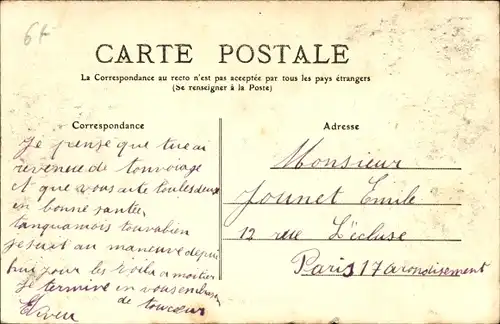 6f
CARTE POSTALE
La Correspondance au recto n'est pas acceptée par tous les pays étrangers
(Se renseigner à la Poste)
Correspondance
Je pense que tue ai
revenue de touvoiage
et que vous aite toulesdeux
en bonne santee,
tanquamois touvabien
jesuit au maneuve depui
hui jour les voila a moitier
Je termine en vousembrassan
de toucœur
Adresse
Monsieur
Jounet Emile
12 rue L'écluse
Paris 17 arondisement